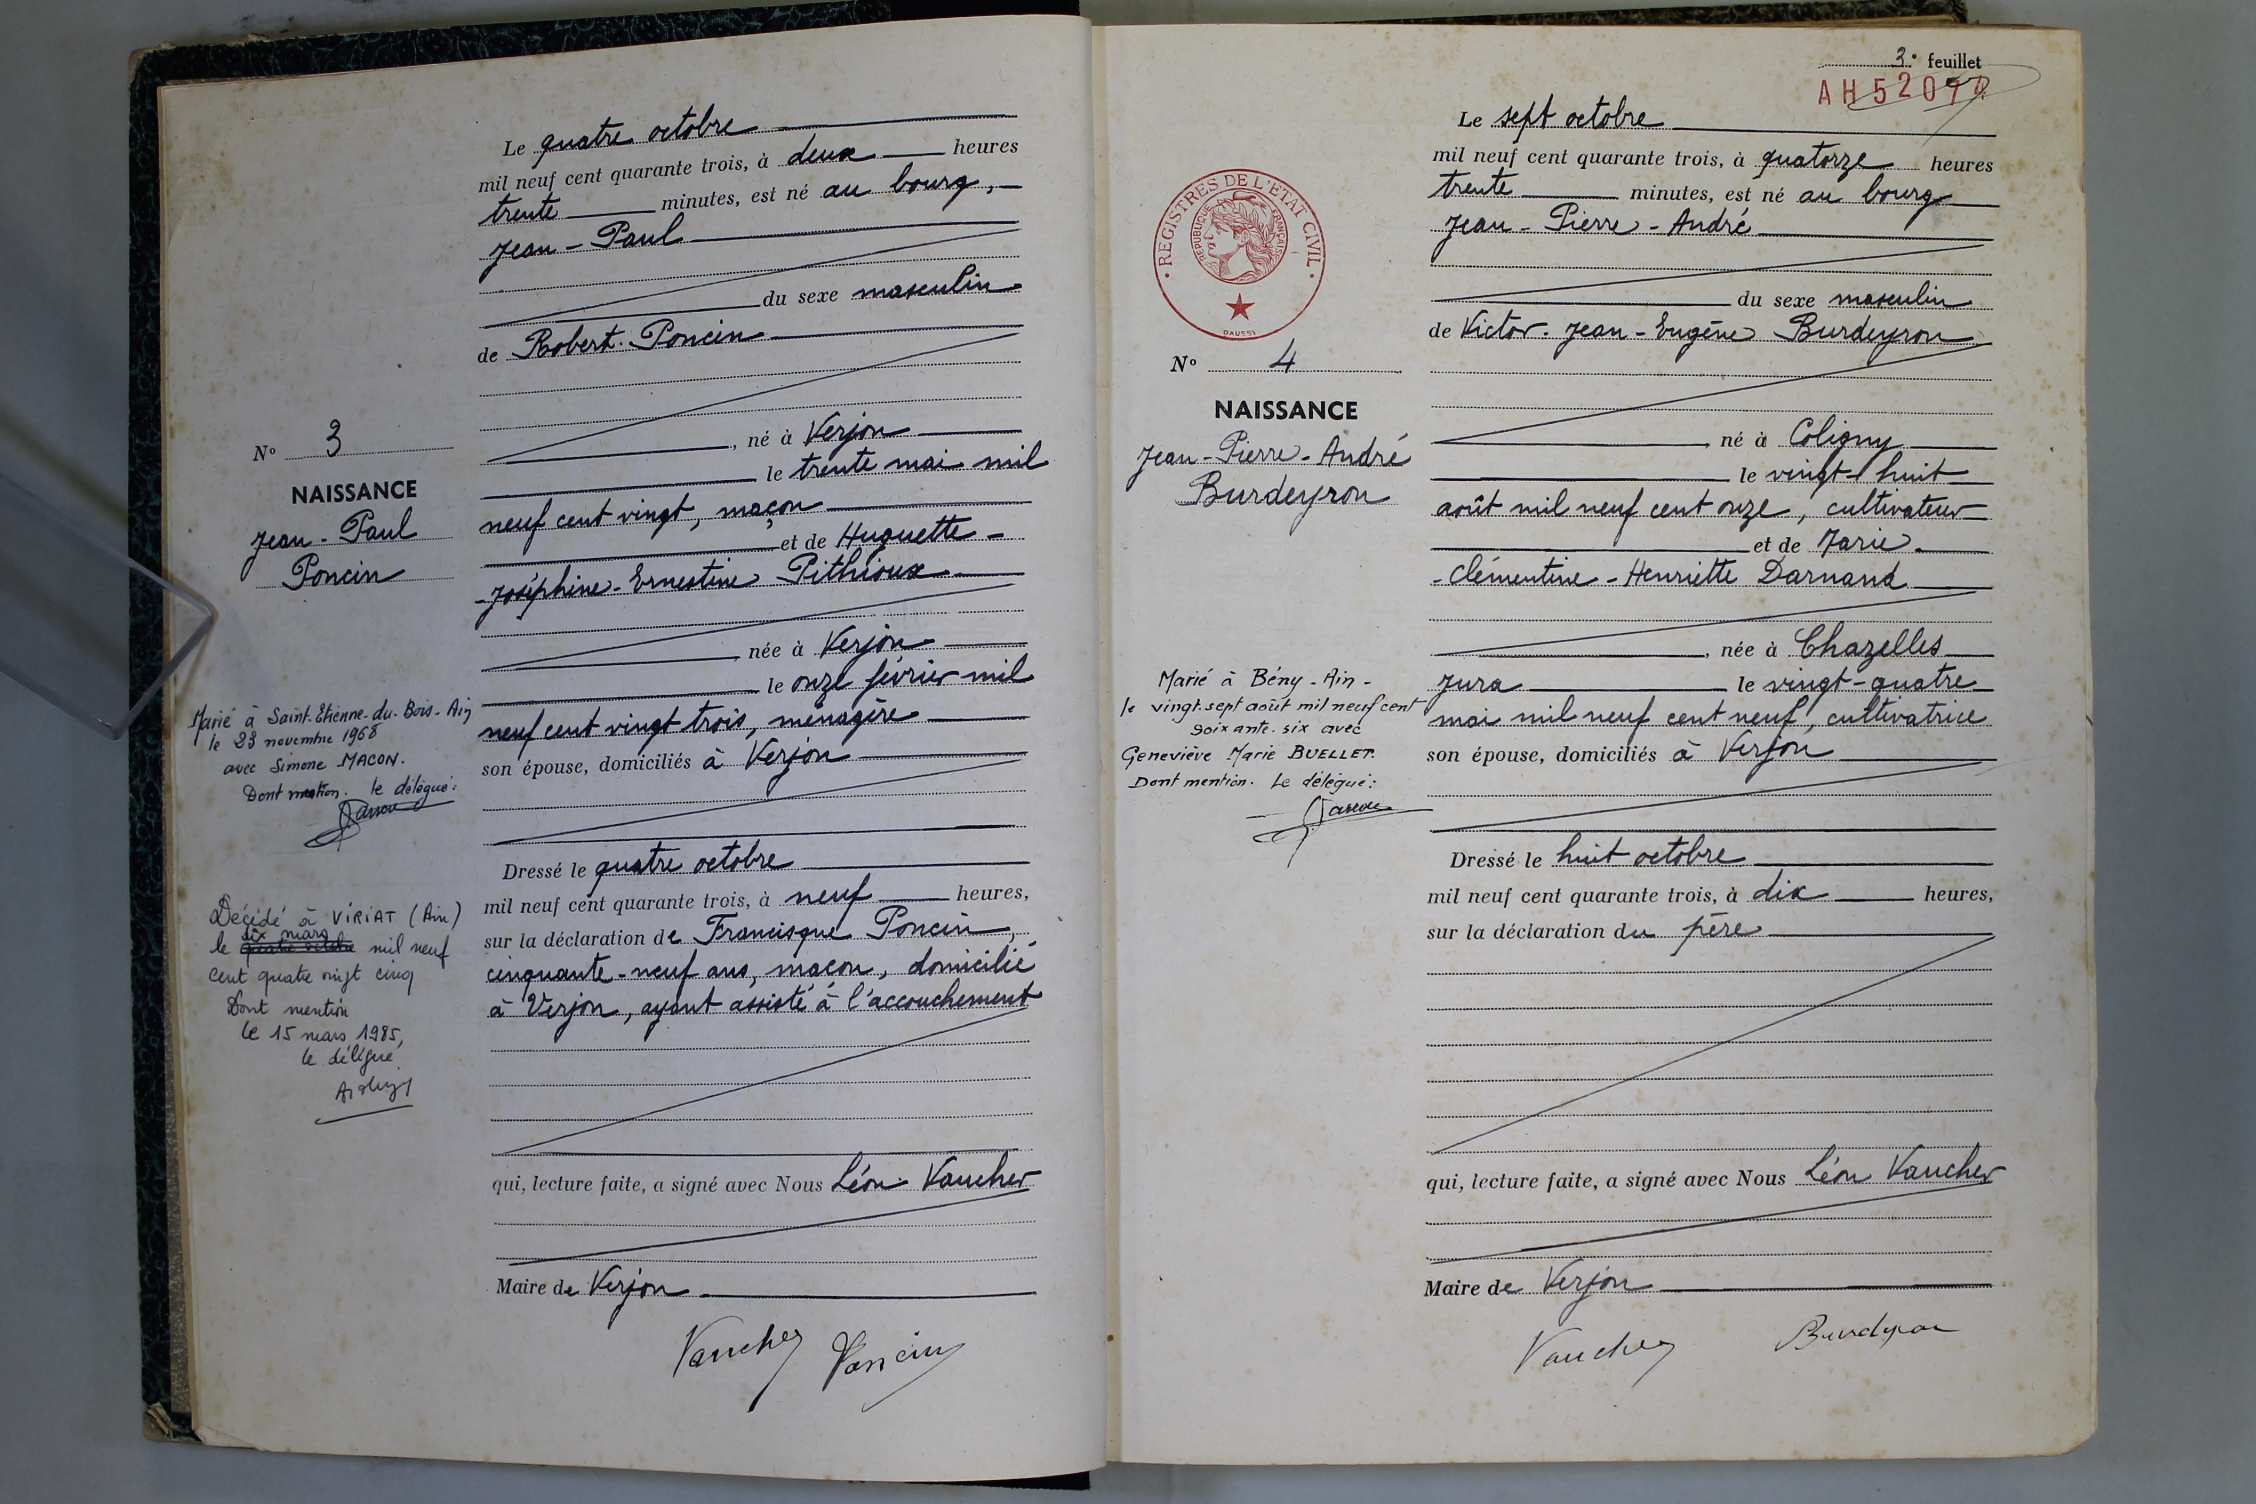 Le quatre octobre
mil neuf cent quarante trois, à deux heures
trente minutes, est né au bourg,
Jean-Paul
du sexe masculin
de Robert Poncin
, né à Verjon
le trente mai mil
neuf cent vingt, maçon
et de Huguette-
-Joséphine-Ernestine Pithioux
née à Verjon
le onze février mil
neuf cent vingt trois, ménagère
son épouse, domiciliés à Verjon
Dressé le quatre octobre
mil neuf cent quarante trois, à neuf heures,
sur la déclaration de Francisque Poncin,
cinquante-neuf ans, maçon, domicilié
à Verjon, ayant assisté à l'accouchement
qui, lecture faite, a signé avec Nous Léon Vaucher
Maire de Verjon
Vaucher Poncin
No 3
NAISSANCE
Jean-Paul
Poncin
Marié à Saint-Etienne-du-Bois-Ain
le 23 novembre 1968
avec Simone MACON.
Dont mention. Le délégué:
Décédé à VIRIAT (Ain)
dix mars
le quatre octobre mil neuf
cent quatre vingt cinq
Dont mention
le 15 mars 1985,
le délégué
3e feuillet
AH5209
Le sept octobre
mil neuf cent quarante trois, à quatorze heures
trente minutes, est né au bourg
Jean-Pierre-André
du sexe masculin
de Victor-Jean-Eugène Burdeyron
, né à Coligny
le vingt-huit
août mil neuf cent onze, cultivateur
et de Marie-
-Clémentine-Henriette Darnand
, née à Chazelles
Jura le vingt-quatre
mai mil neuf cent neuf, cultivatrice
son épouse, domiciliés à Verjon
Dressé le huit octobre
mil neuf cent quarante trois, à dix heures,
sur la déclaration du père
qui, lecture faite, a signé avec Nous Léon Vaucher
Maire de Verjon
Vaucher Burdeyron
REGISTRES DE L'ETAT CIVIL
REPUBLIQUE FRANÇAISE
DAUSSI
No 4
NAISSANCE
Jean-Pierre-André
Burdeyron
Marié à Bény-Ain-
le vingt-sept août mil neuf cent
soixante-six avec
Geneviève Marie BUELLET.
Dont mention. Le délégué: